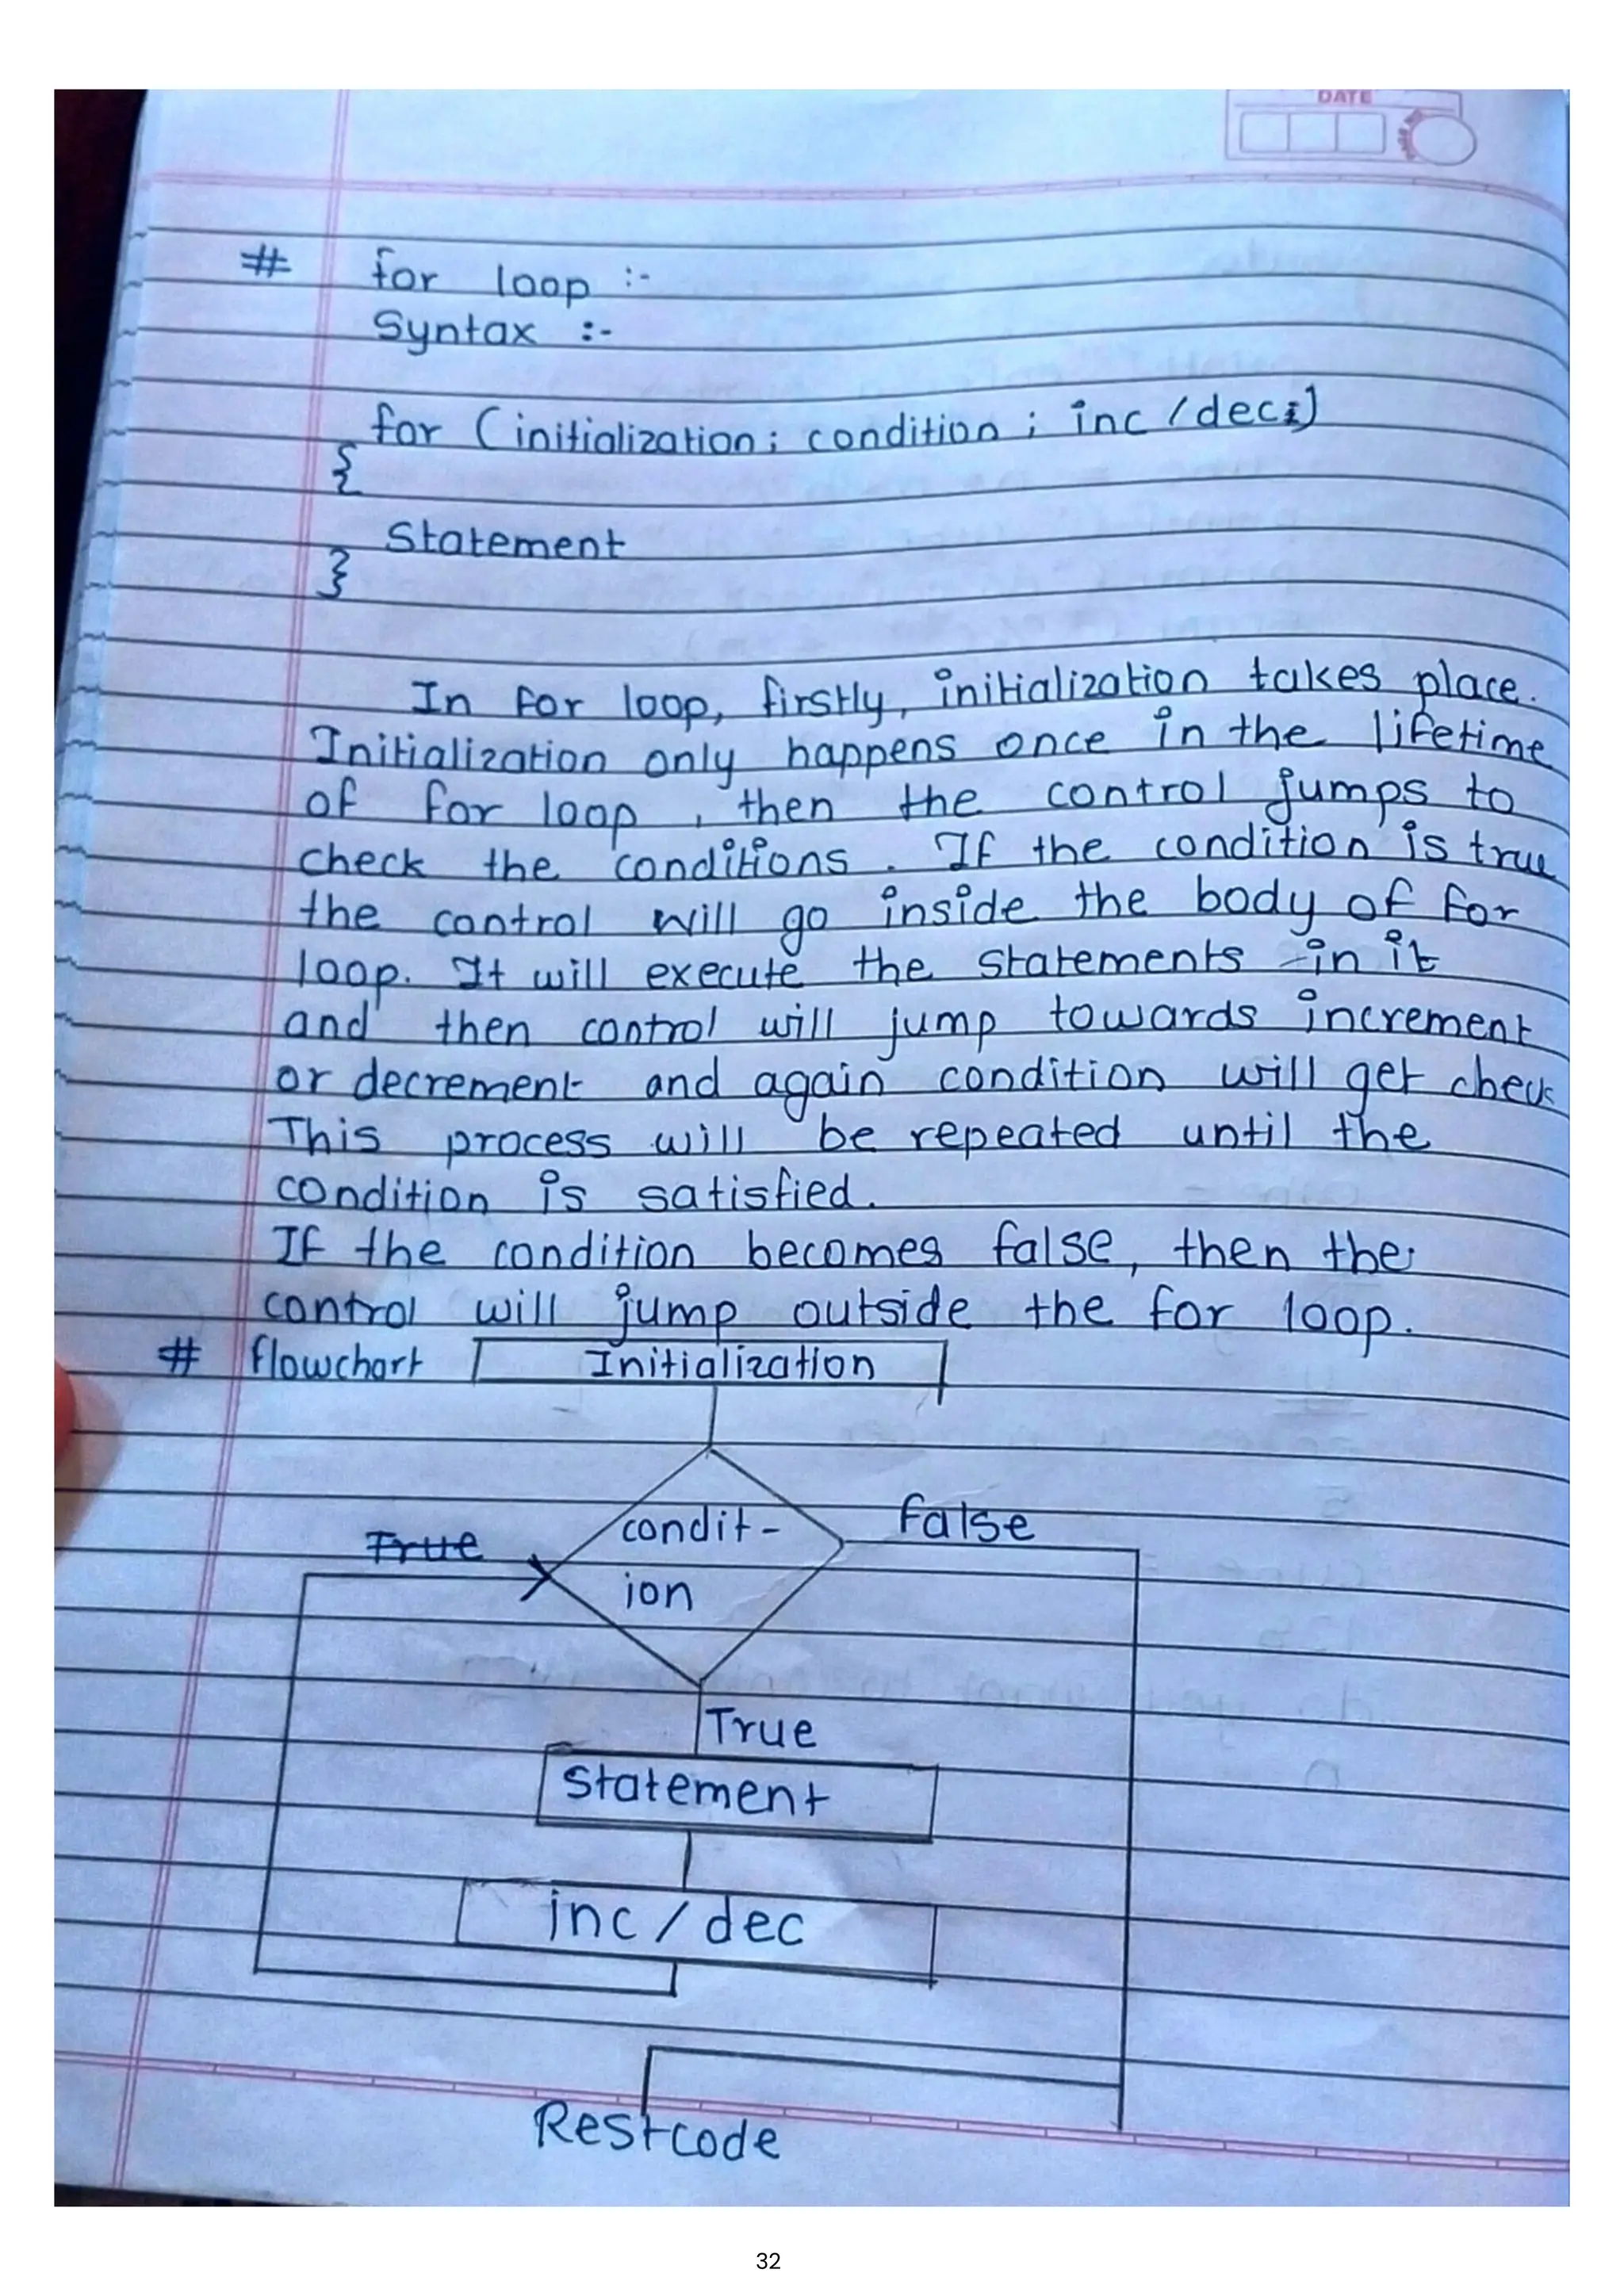 DATE
# for loop :-
Syntax :-
for (initialization; condition; inc/dec)
{
Statement
}
In for loop, firstly, initialization takes place.
Initialization only happens once in the lifetime
of for loop, then the control jumps to
check the conditions. If the condition is true
the control will go inside the body of for
loop. It will execute the statements in it
and then control will jump towards increment
or decrement and again condition will get check
This process will be repeated until the
condition is satisfied.
If the condition becomes false, then the
control will jump outside the for loop.
# flowchart Initialization
condit-
ion
True
False
True
Statement
inc/dec
Restcode
32